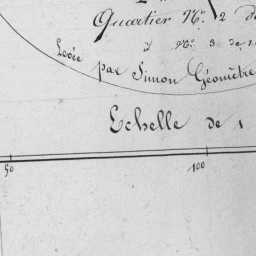 Quartier N.° 2 de
N.° 3 de
Levée
par Simon Géomètre
Echelle de 1
50 100